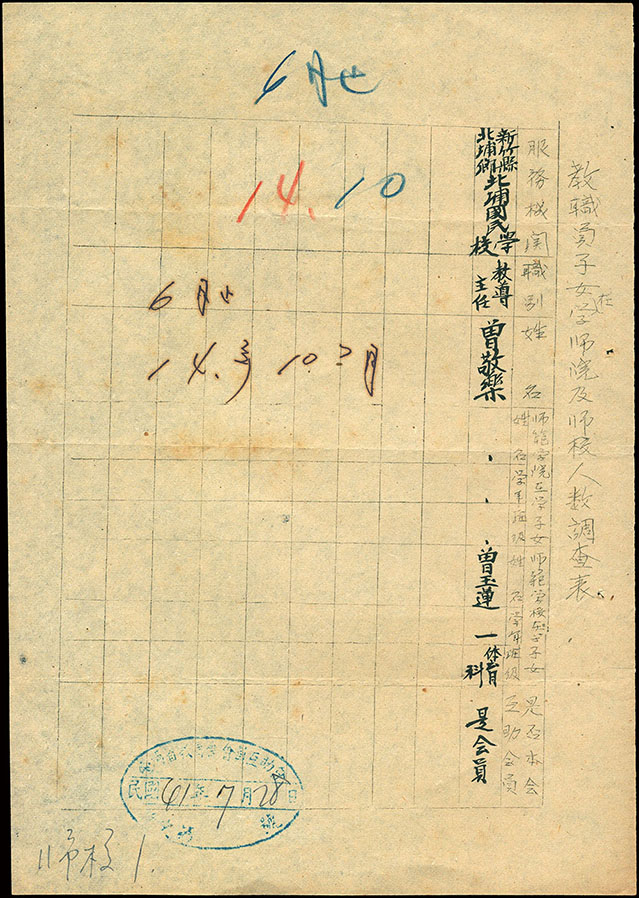 教職員子女在学师院及师校人数調查表
服務機関
職別
姓名
师範学院在学子女
姓名
学年班级
师範学校在学子女
姓名
学年班级
是否本会
互助会員
新竹縣
北埔鄉
北埔國民学校
教導
主任
曽敬樂
、
、
、
曽玉蓮
一
体育
科
是会員
6月
14.10
6月
14.
10
月
民國41年7月28日
號
师校1.